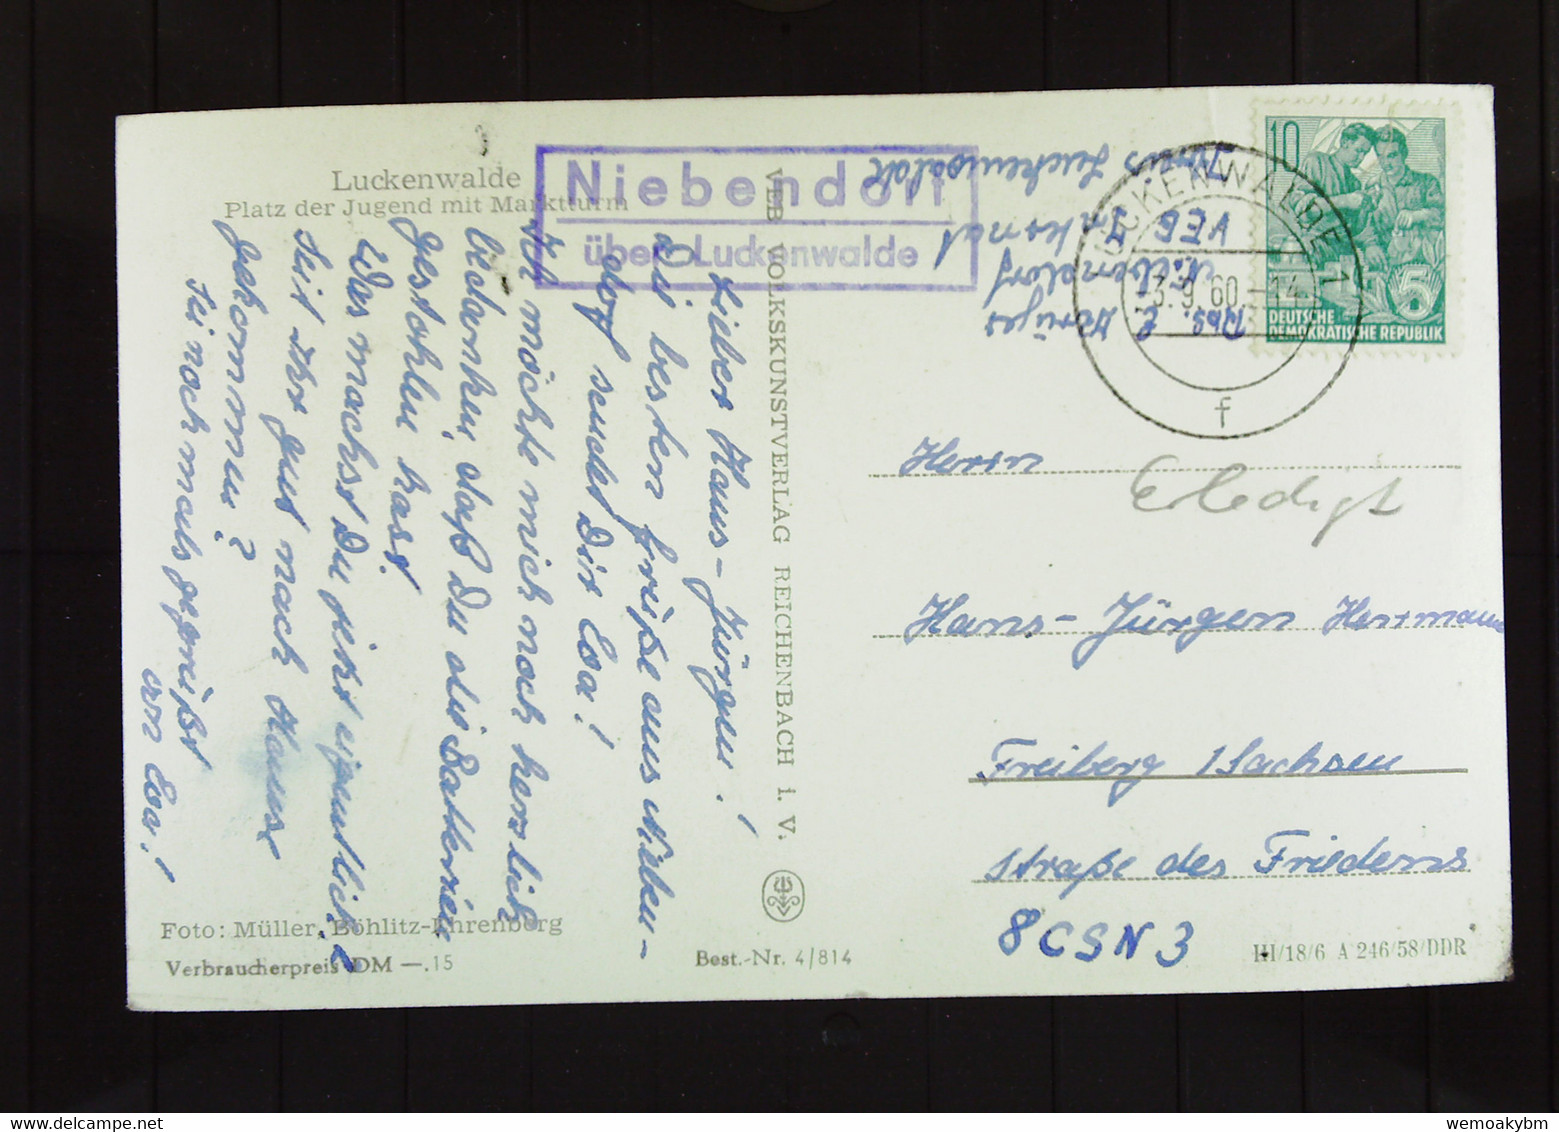 Luckenwalde
Platz der Jugend mit Marktturm
Niebendorf
über Luckenwalde
Lieber Hans-Jürgen!
Die besten Grüße aus Nieben-
dorf sendet Dir Eva!
Ich möchte mich noch herzlich
bedanken, daß Du die Batterien
gestohlen hast.
Was machst Du jetzt eigentlich?
Seit Ihr gut nach Hause
gekommen?
Sei nochmals gegrüßt
von Eva!
Foto: Müller, Böhlitz-Ehrenberg
Verbraucherpreis DM —.15
Best.-Nr. 4/814
VEB VOLKSKUNSTVERLAG REICHENBACH i. V.
Abs. E.
Niebendorf
VEB
Kreis Luckenwalde
LUCKENWALDE 1
-3.9.60.-14
f
10
5
DEUTSCHE
DEMOKRATISCHE REPUBLIK
Herrn
Erledigt
Hans-Jürgen Herrmann
Freiberg /Sachsen
Straße des Friedens
8CSN3
III/18/6 A 246/58/DDR
wemoakybm